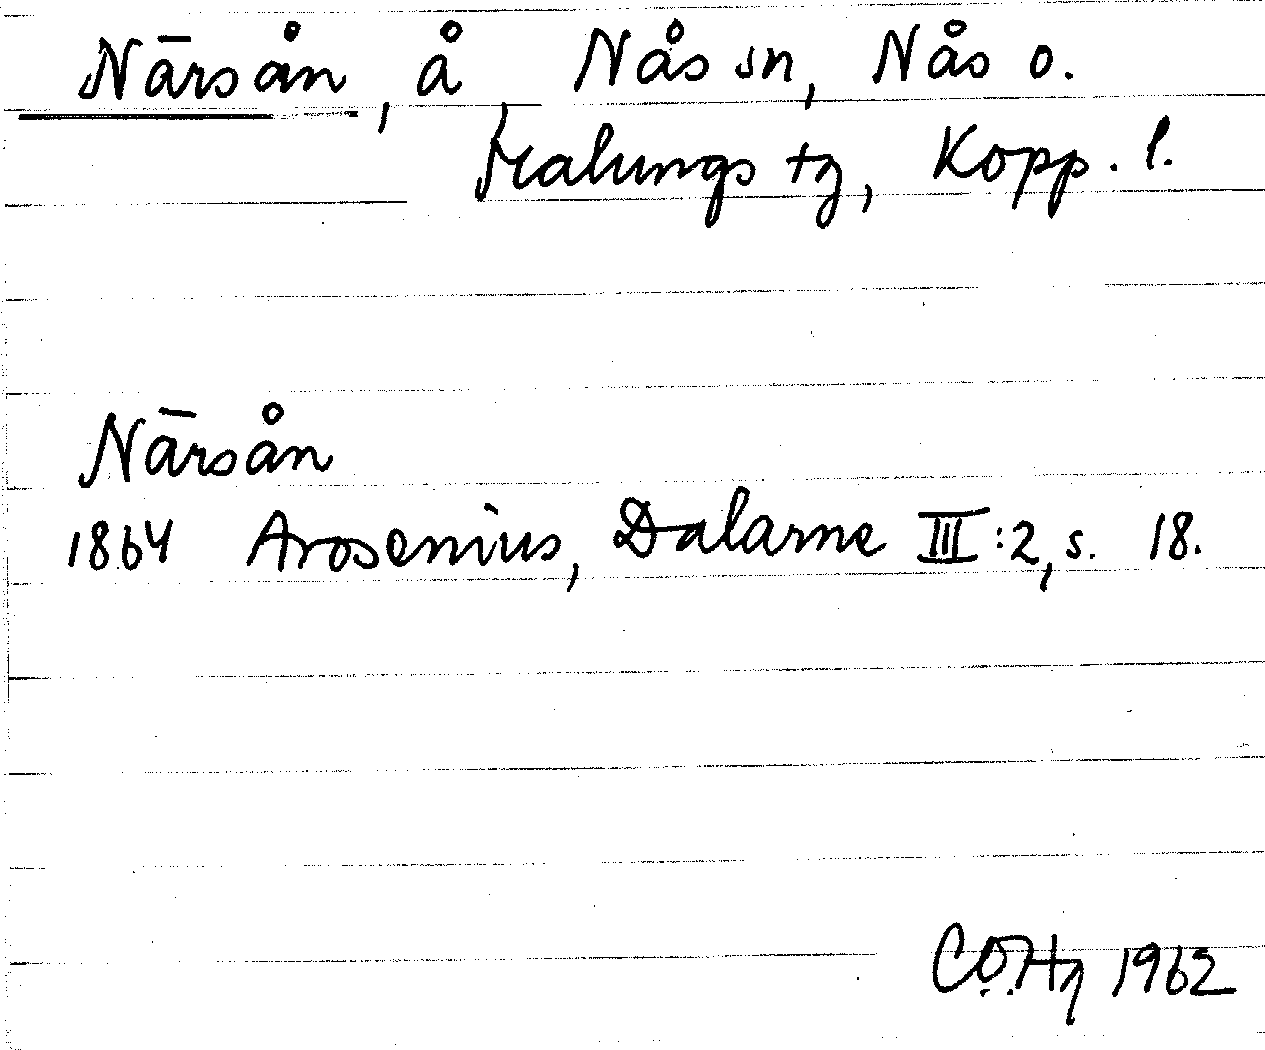 Närsån, å, Nås sn, Nås o.
Malungs tg, Kopp. l.
Närsån
1864 Arosenius, Dalarne III:2, s. 18.
1962